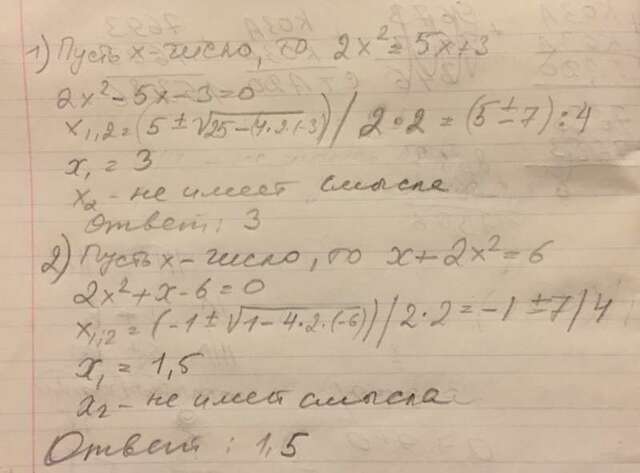 1) Пусть x-число, то 2x² = 5x+3
2x² - 5x - 3 = 0
x₁,₂ = (5 ± √25-(4·2·(-3)) / 2·2 = (5 ± 7) : 4
x₁ = 3
x₂ - не имеет смысла
Ответ: 3
2) Пусть x-число, то x+2x² = 6
2x²+x-6=0
x₁,₂ = (-1 ± √1-4·2·(-6)) / 2·2 = -1 ± 7 / 4
x₁ = 1,5
x₂ - не имеет смысла
Ответ: 1,5